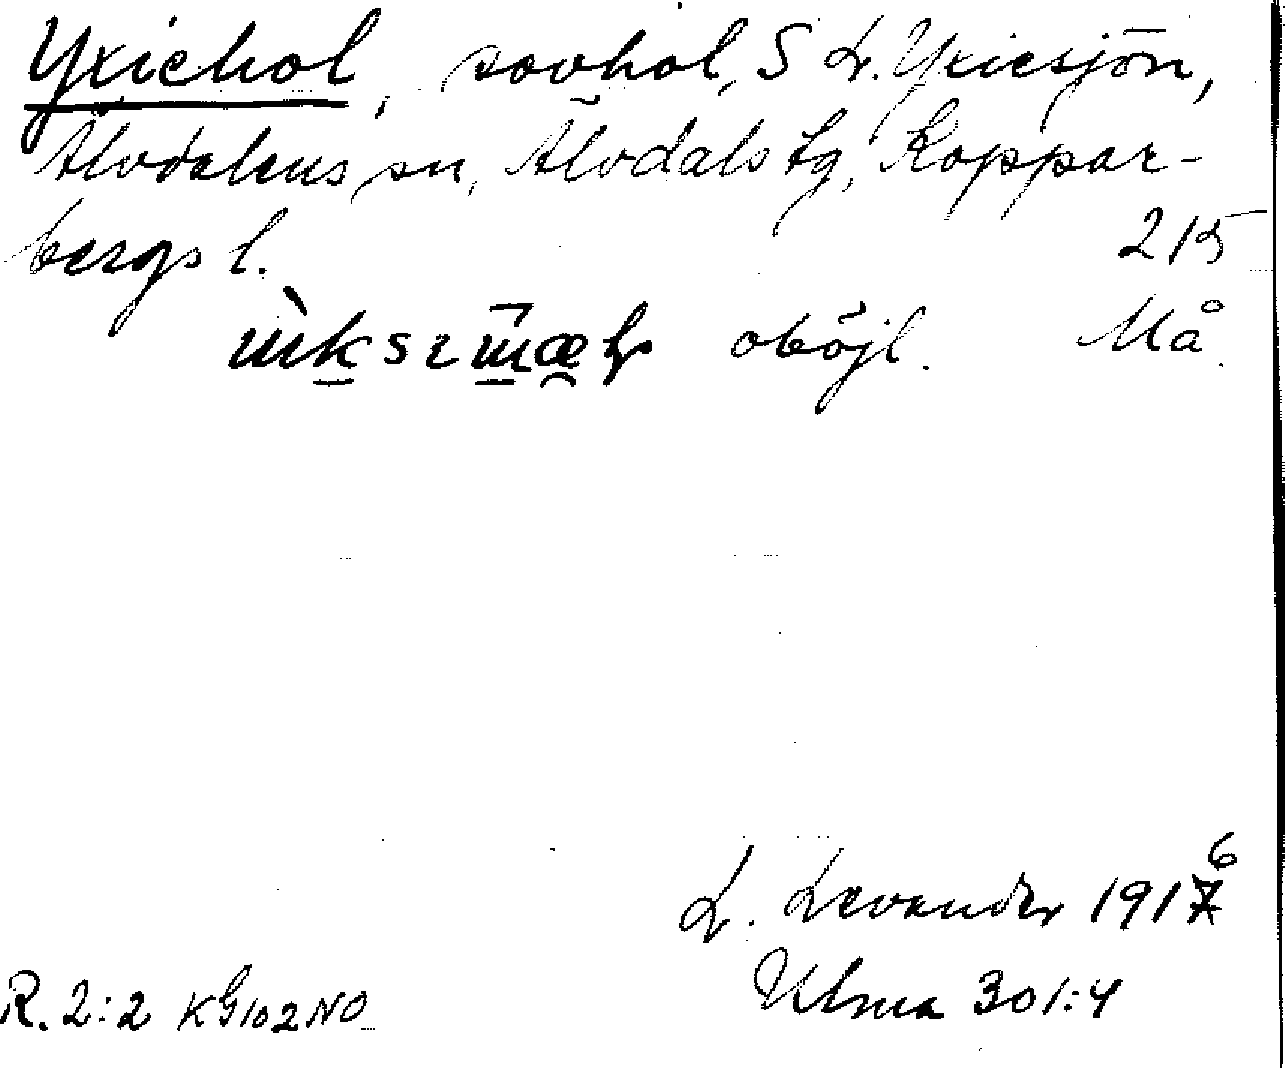 Yxiehol, sovhol, S L. Yxiesjön,
Älvdalens sn, Älvdals tg, Koppar-
bergs l. 215
oböjl. Må.
L. Levander 1916
Ulma 301:4
R. 2:2 KG102NO